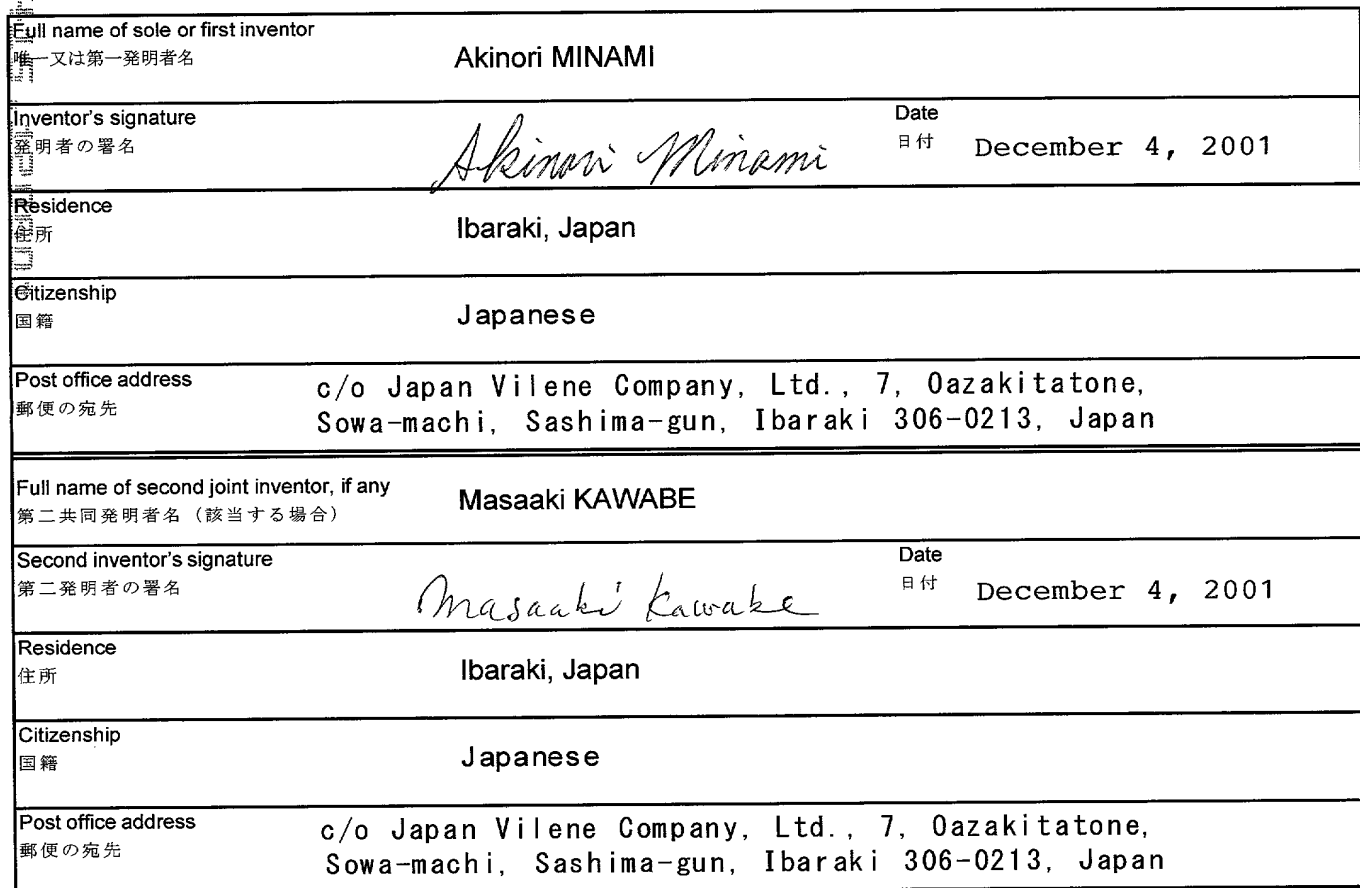 Full name of sole or first inventor
唯一又は第一発明者名
Akinori MINAMI
Inventor's signature
発明者の署名
Akinori Minami
Date
日付
December 4, 2001
Residence
住所
Ibaraki, Japan
Citizenship
国籍
Japanese
Post office address
郵便の宛先
c/o Japan Vilene Company, Ltd., 7, Oazakitatone,
Sowa-machi, Sashima-gun, Ibaraki 306-0213, Japan
Full name of second joint inventor, if any
第二共同発明者名（該当する場合）
Masaaki KAWABE
Second inventor's signature
第二発明者の署名
Masaaki Kawabe
Date
日付
December 4, 2001
Residence
住所
Ibaraki, Japan
Citizenship
国籍
Japanese
Post office address
郵便の宛先
c/o Japan Vilene Company, Ltd., 7, Oazakitatone,
Sowa-machi, Sashima-gun, Ibaraki 306-0213, Japan